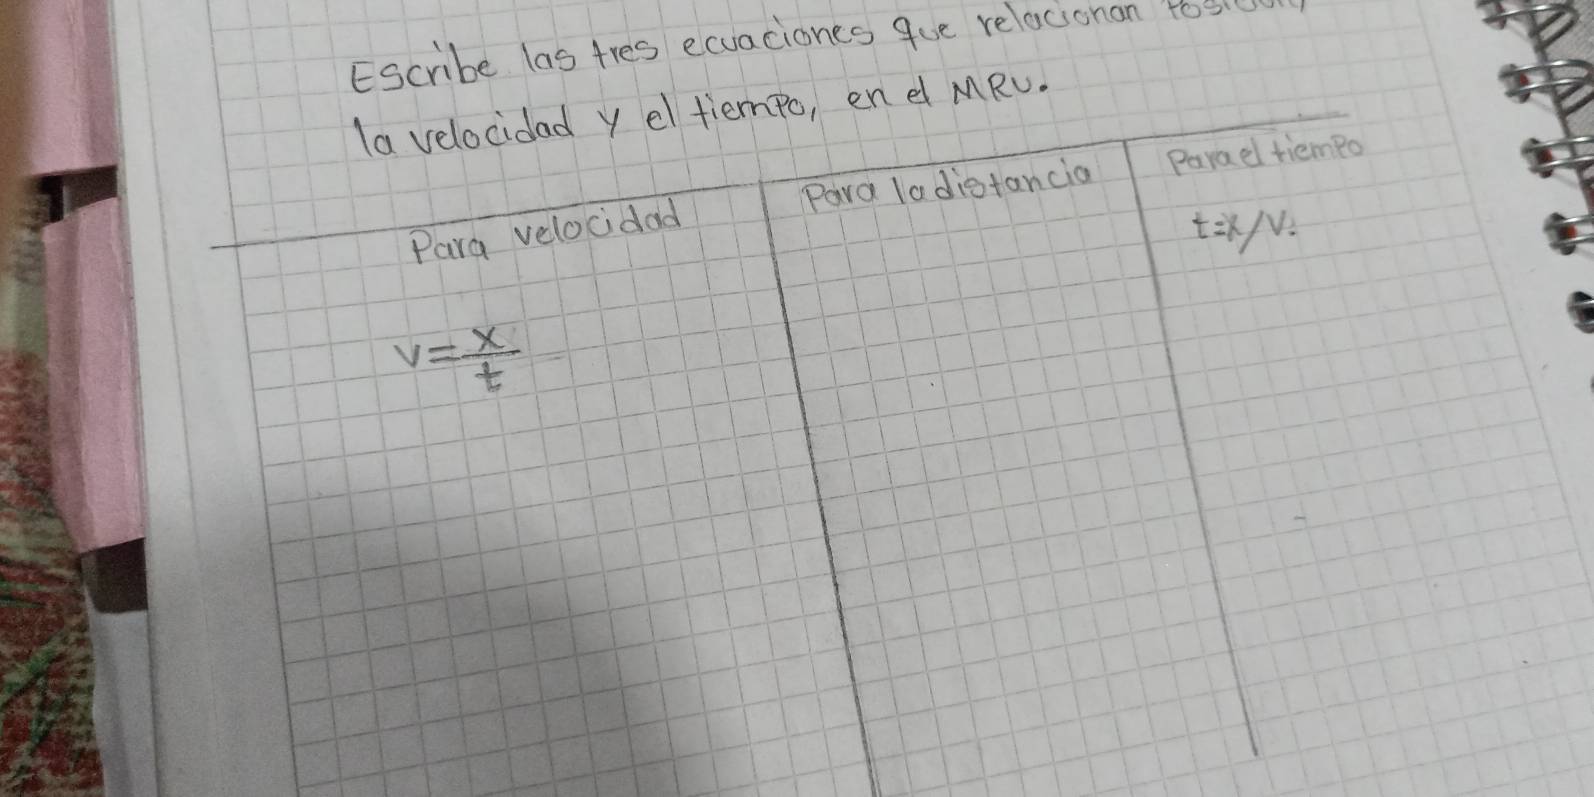 Escribe las tres ecuaciones que relacionan
la velocidad y el tiempo, en el MRU.
Para velocidad
Para la distancia
Para el tiempo
t=x/v.
v=x/t